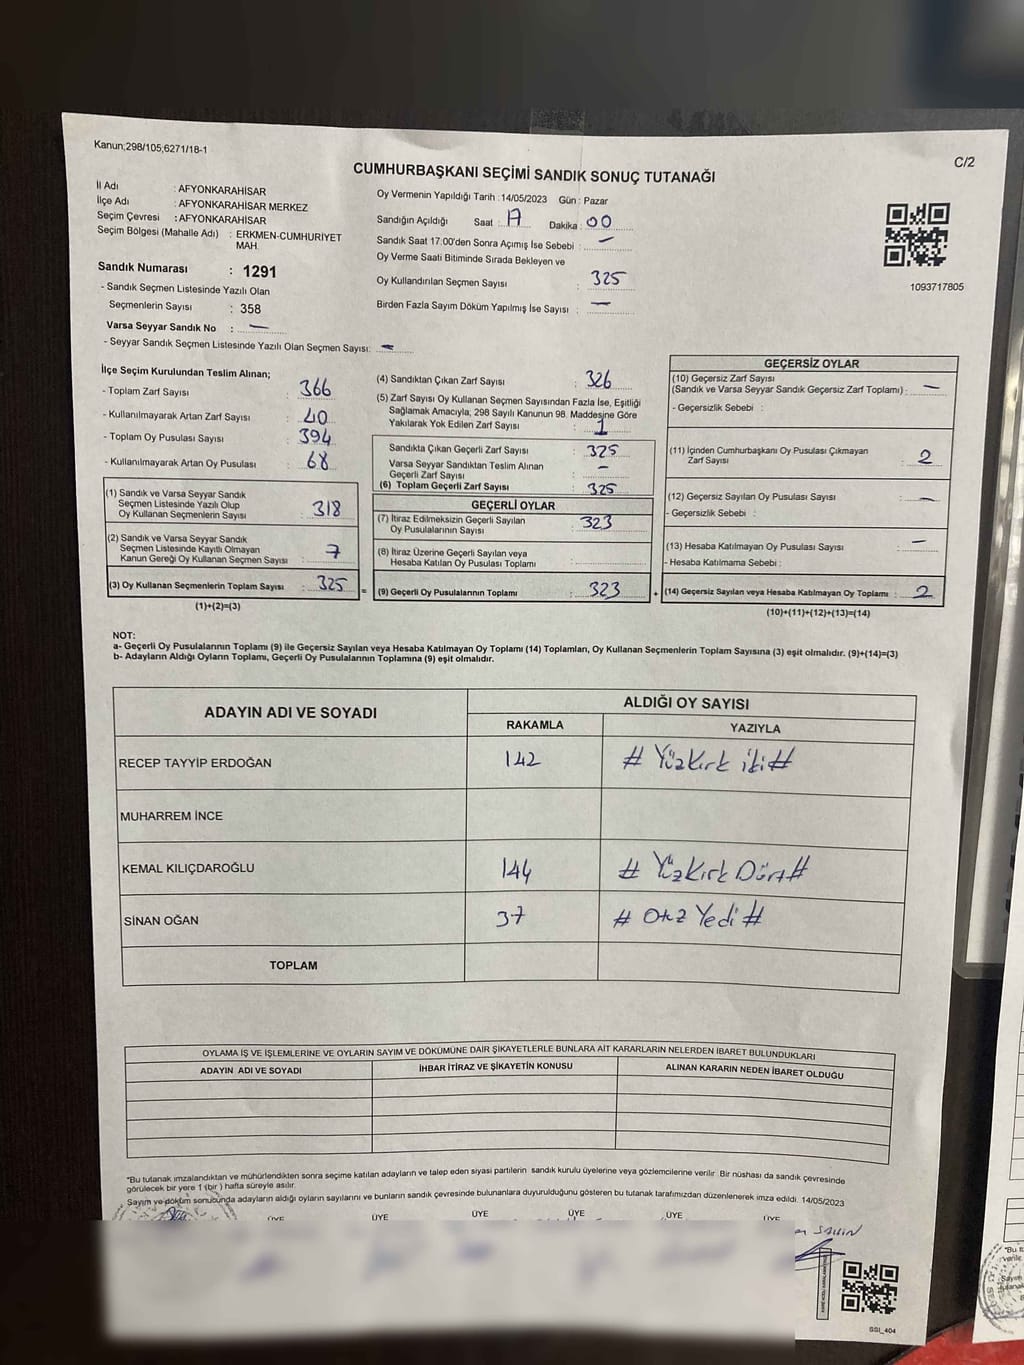 Kanun;298/105,6271/18-1
C/2
CUMHURBAŞKANI SEÇİMİ SANDIK SONUÇ TUTANAĞI
İl Adı : AFYONKARAHİSAR
İlçe Adı : AFYONKARAHİSAR MERKEZ
Seçim Çevresi : AFYONKARAHİSAR
Seçim Bölgesi (Mahalle Adı) : ERKMEN-CUMHURİYET
MAH.
Sandık Numarası : 1291
- Sandık Seçmen Listesinde Yazılı Olan
Seçmenlerin Sayısı : 358
Varsa Seyyar Sandık No : —
- Seyyar Sandık Seçmen Listesinde Yazılı Olan Seçmen Sayısı: —
Oy Vermenin Yapıldığı Tarih : 14/05/2023 Gün : Pazar
Sandığın Açıldığı Saat : 17 Dakika : 00
Sandık Saat 17:00'den Sonra Açımış İse Sebebi : —
Oy Verme Saati Bitiminde Sırada Bekleyen ve
Oy Kullandırılan Seçmen Sayısı : 325
Birden Fazla Sayım Döküm Yapılmış İse Sayısı : —
1093717805
İlçe Seçim Kurulundan Teslim Alınan;
- Toplam Zarf Sayısı : 366
- Kullanılmayarak Artan Zarf Sayısı : 40
- Toplam Oy Pusulası Sayısı : 394
- Kullanılmayarak Artan Oy Pusulası : 68
(1) Sandık ve Varsa Seyyar Sandık
Seçmen Listesinde Yazılı Olup
Oy Kullanan Seçmenlerin Sayısı : 318
(2) Sandık ve Varsa Seyyar Sandık
Seçmen Listesinde Kayıtlı Olmayan
Kanun Gereği Oy Kullanan Seçmen Sayısı : 7
(3) Oy Kullanan Seçmenlerin Toplam Sayısı : 325 =
(1)+(2)=(3)
(4) Sandıktan Çıkan Zarf Sayısı : 326
(5) Zarf Sayısı Oy Kullanan Seçmen Sayısından Fazla İse, Eşitliği
Sağlamak Amacıyla, 298 Sayılı Kanunun 98. Maddesine Göre
Yakılarak Yok Edilen Zarf Sayısı : 1
Sandıkta Çıkan Geçerli Zarf Sayısı : 325
Varsa Seyyar Sandıktan Teslim Alınan
Geçerli Zarf Sayısı : —
(6) Toplam Geçerli Zarf Sayısı : 325
GEÇERLİ OYLAR
(7) İtiraz Edilmeksizin Geçerli Sayılan
Oy Pusulalarının Sayısı : 323
(8) İtiraz Üzerine Geçerli Sayılan veya
Hesaba Katılan Oy Pusulası Toplamı :
(9) Geçerli Oy Pusulalarının Toplamı : 323 +
GEÇERSİZ OYLAR
(10) Geçersiz Zarf Sayısı
(Sandık ve Varsa Seyyar Sandık Geçersiz Zarf Toplamı) : —
- Geçersizlik Sebebi :
(11) İçinden Cumhurbaşkanı Oy Pusulası Çıkmayan
Zarf Sayısı : 2
(12) Geçersiz Sayılan Oy Pusulası Sayısı : —
- Geçersizlik Sebebi :
(13) Hesaba Katılmayan Oy Pusulası Sayısı : —
- Hesaba Katılmama Sebebi :
(14) Geçersiz Sayılan veya Hesaba Katılmayan Oy Toplamı : 2
(10)+(11)+(12)+(13)=(14)
NOT:
a- Geçerli Oy Pusulalarının Toplamı (9) ile Geçersiz Sayılan veya Hesaba Katılmayan Oy Toplamı (14) Toplamları, Oy Kullanan Seçmenlerin Toplam Sayısına (3) eşit olmalıdır. (9)+(14)=(3)
b- Adayların Aldığı Oyların Toplamı, Geçerli Oy Pusulalarının Toplamına (9) eşit olmalıdır.
ADAYIN ADI VE SOYADI
ALDIĞI OY SAYISI
RAKAMLA YAZIYLA
RECEP TAYYİP ERDOĞAN 142 # Yüzkırk iki #
MUHARREM İNCE
KEMAL KILIÇDAROĞLU 144 # Yüzkırk Dört #
SİNAN OĞAN 37 # Otuz Yedi #
TOPLAM
OYLAMA İŞ VE İŞLEMLERİNE VE OYLARIN SAYIM VE DÖKÜMÜNE DAİR ŞİKAYETLERLE BUNLARA AİT KARARLARIN NELERDEN İBARET BULUNDUKLARI
ADAYIN ADI VE SOYADI İHBAR İTİRAZ VE ŞİKAYETİN KONUSU ALINAN KARARIN NEDEN İBARET OLDUĞU
"Bu tutanak imzalandıktan ve mühürlendikten sonra seçime katılan adayların ve talep eden siyasi partilerin sandık kurulu üyelerine veya gözlemcilerine verilir. Bir nüshası da sandık çevresinde
görülecek bir yere 1 (bir ) hafta süreyle asılır.
Sayım ve döküm sonubunda adayların aldığı oyların sayılarını ve bunların sandık çevresinde bulunanlara duyurulduğunu gösteren bu tutanak tarafımızdan düzenlenerek imza edildi. 14/05/2023
ÜYE ÜYE ÜYE ÜYE ÜYE ÜYE
SSI_404
"Bu